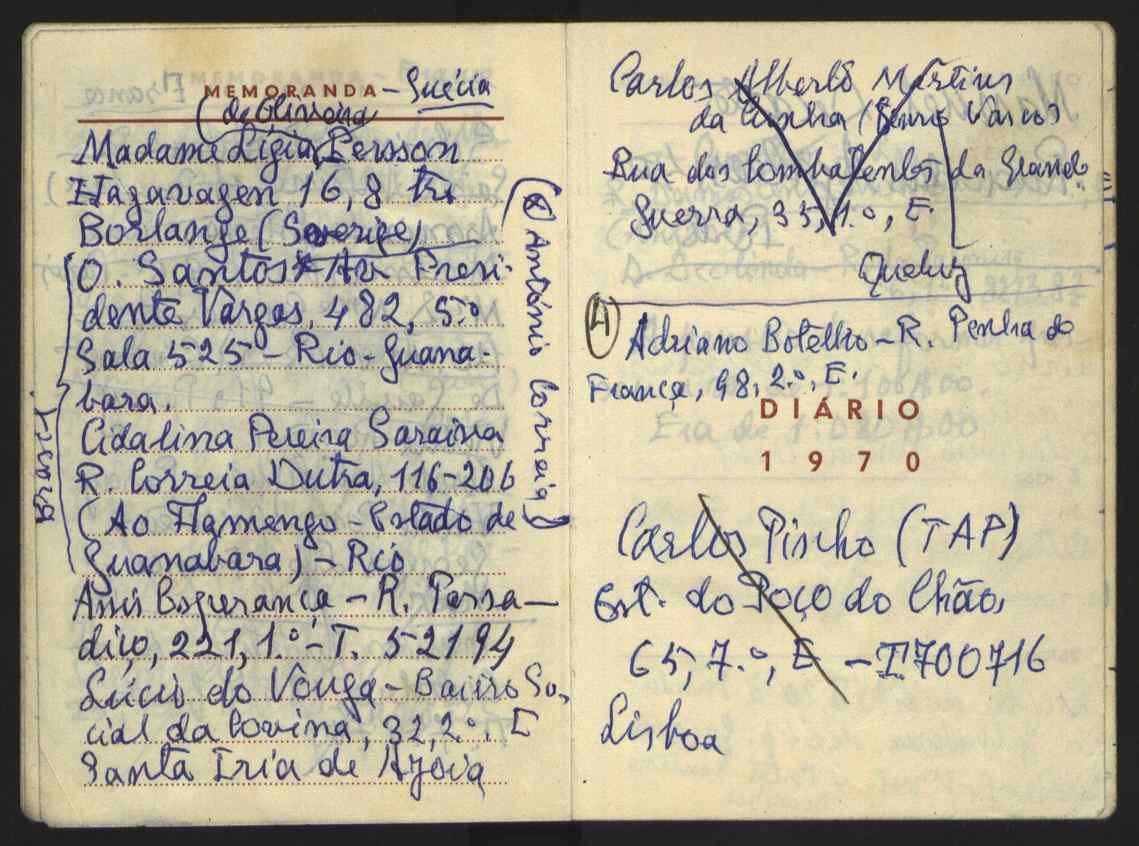 MEMORANDA - Suécia
(de Oliveira)
Madame Lígia Persson
Hagavagen 16, 8 tri
Borlange (Sverige)
O. Santos * Av. Presi-
dente Vargas, 482, 5.º
Sala 525 - Rio - Guana-
bara.
Cidalina Pereira Saraiva
R. Correia Dutra, 116-206
(Ao Flamengo - Estado de
Guanabara) - Rio
Brasil
(* António Correia)
Assis Esperança - R. Passa-
diço, 221, 1.º - T. 52194
Lúcio do Vouga - Bairro So-
cial da Covina, 32, 2.º, E
Santa Iria de Azoia
Carlos Alberto Martins
da Cunha (Vasco)
Rua dos Combatentes da Grande
Guerra, 35, 1.º, E.
Queluz
4) Adriano Botelho - R. Penha de
França, 98, 2.º, E.
DIÁRIO
1970
Carlos Pinho (TAP)
Est. do Poço do Chão,
65, 7.º, E - T. 700716
Lisboa